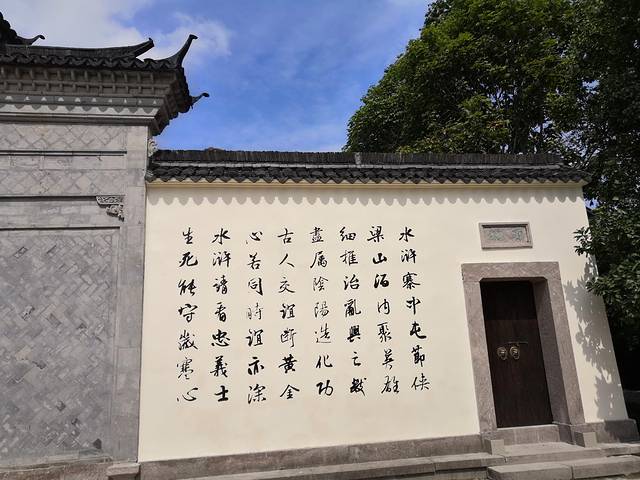 水滸寨中屯節俠
梁山泊内聚英雄
細推治亂興亡數
盡屬陰陽造化功
古人交誼斷黄金
心若同時誼亦深
水滸請看忠義士
生死能守歲寒心